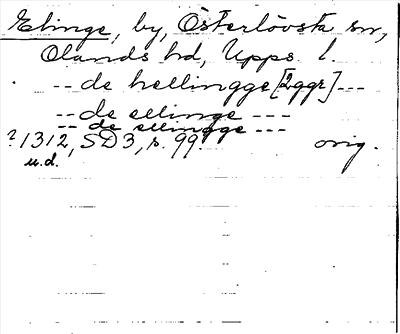 Elinge, by, Österlövsta sn,
Olands hd, Upps. l.
-- de hellingge [2ggr] ---
-- de elinge ---
-- de elingge ---
? 1312, SD 3, s. 99. orig.
u.d.